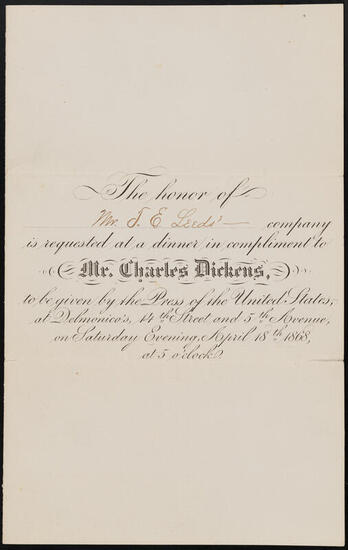 The honor of
Mr. J. E Leeds' company
is requested at a dinner in compliment to
Mr. Charles Dickens,
to be given by the Press of the United States,
at Delmonico's, 14th Street and 5th Avenue,
on Saturday Evening, April 18th 1868,
at 5 o'clock.